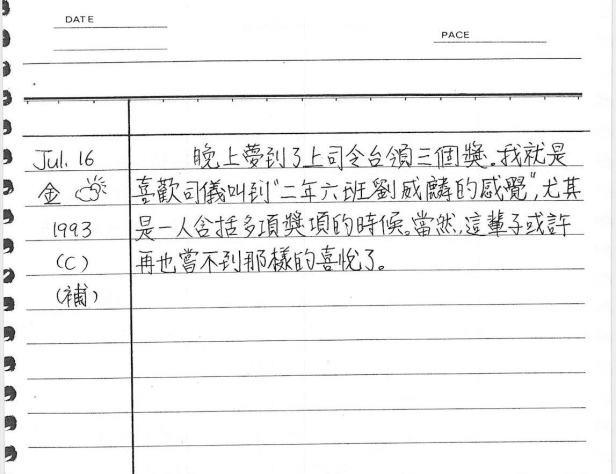 DATE
PACE
Jul. 16
金
1993
(C)
(補)
晚上夢到了上司令台領三個獎。我就是
喜歡司儀叫到"二年六班劉威麟的感覺",尤其
是一人含括多項獎項的時候。當然,這輩子或許
再也嘗不到那樣的喜悅了。